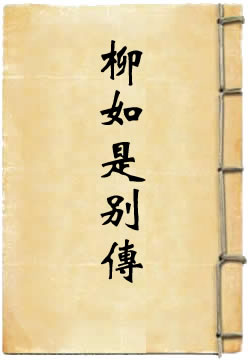 柳如是別傳